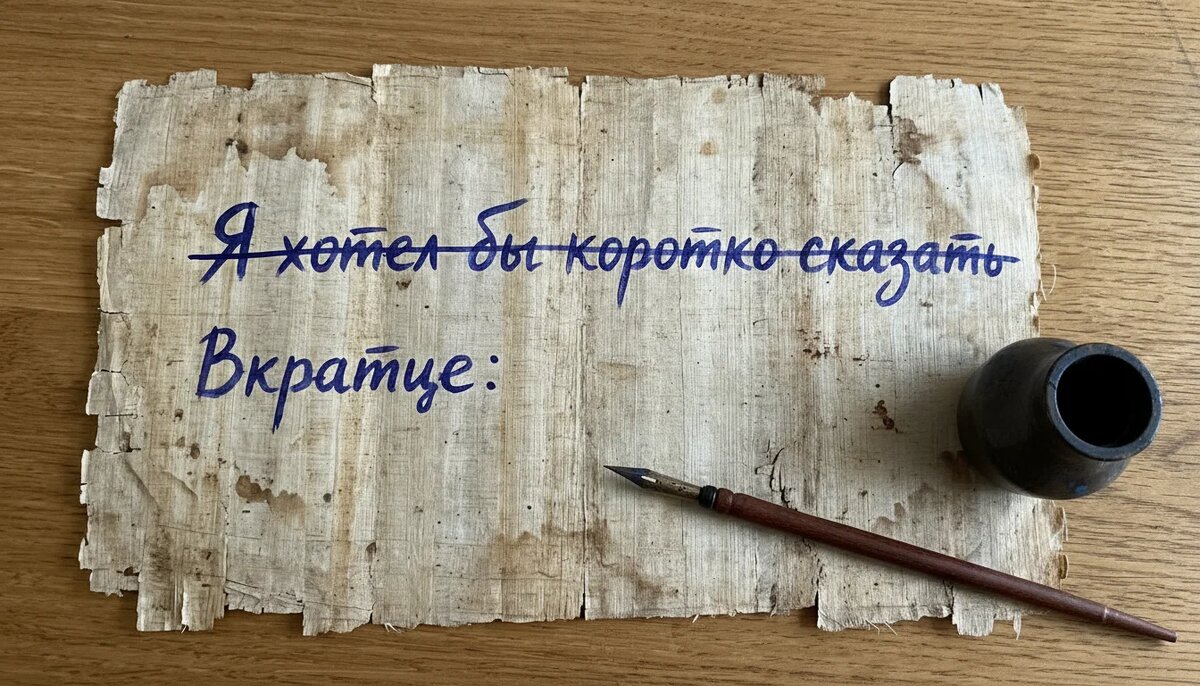 Я хотел бы коротко сказать
Вкратце: